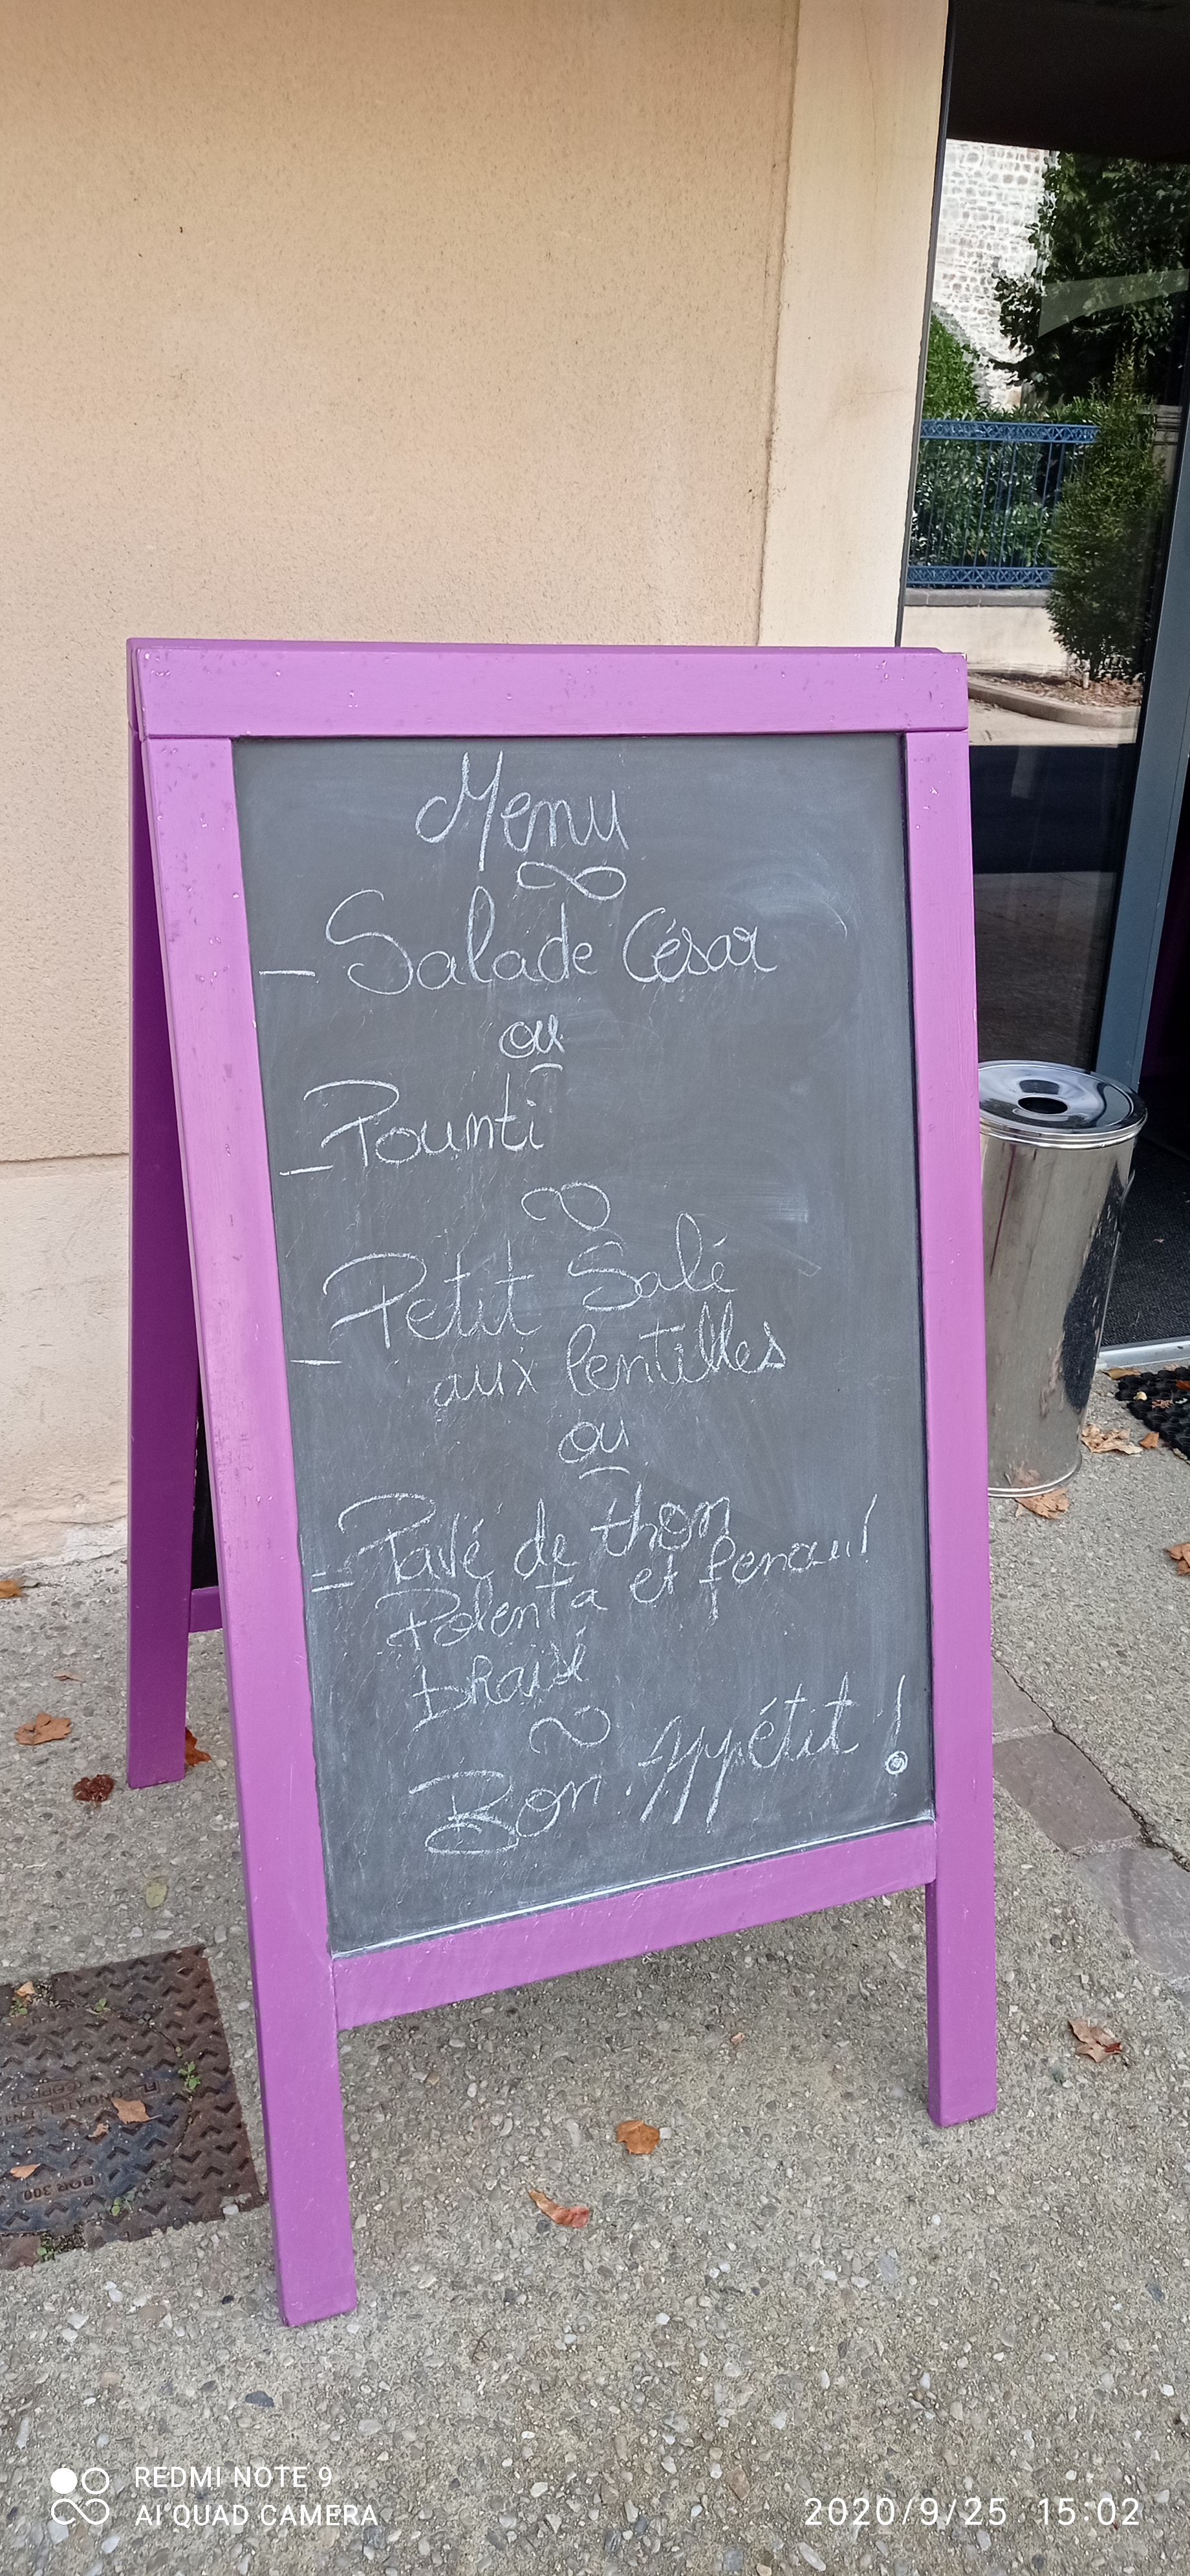 Menu
- Salade César
ou
- Pounti
Petit Salé
- aux lentilles
ou
- Pavé de thon
Polenta et fenouil
braisé
Bon Appétit !
BOR 300
REDMI NOTE 9
AI QUAD CAMERA
2020/9/25 15:02